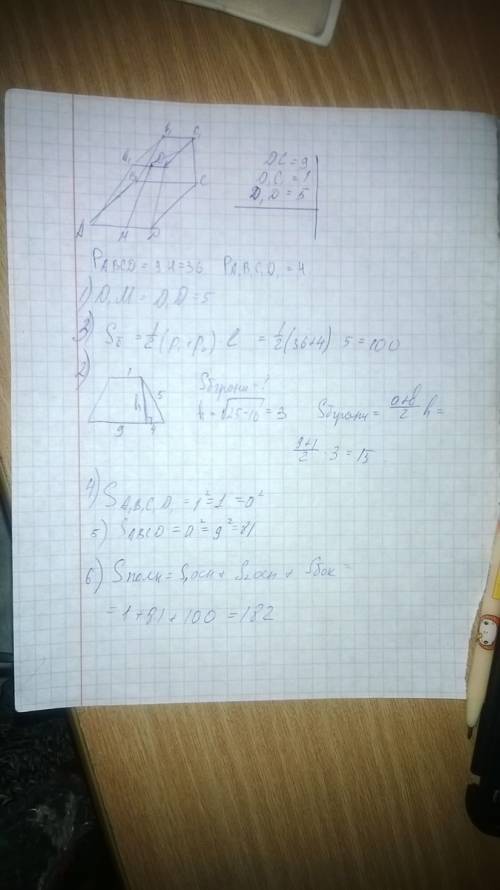 B₁ C₁
A₁ D₁
B C
A M D
DC = 9
D₁C₁ = 1
D₁D = 5
P ABCD = 9·4 = 36 P A₁B₁C₁D₁ = 4
1) D₁M = D₁D = 5
3) Sб = 1/2 (P₁+P₂) l = 1/2 (36+4) 5 = 100
2)
1
h 5
9 4
Sбграни = ?
h = √25-16 = 3
Sбграни = a+b/2 h =
9+1/2 · 3 = 15
4) S A₁B₁C₁D₁ = 1² = 1 = a²
5) S ABCD = a² = 9² = 81
6) Sполн = S₁осн + S₂осн + Sбок =
= 1 + 81 + 100 = 182